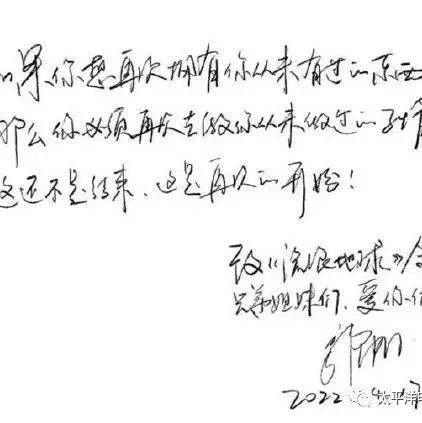 如果你想再次拥有你从来有过的东西
那么你必须再次去做你从来做过的事情
这还不是结束、这是再次的开始！
致《流浪地球》全
兄弟姐妹们、爱你们
2022 4.17
太平洋